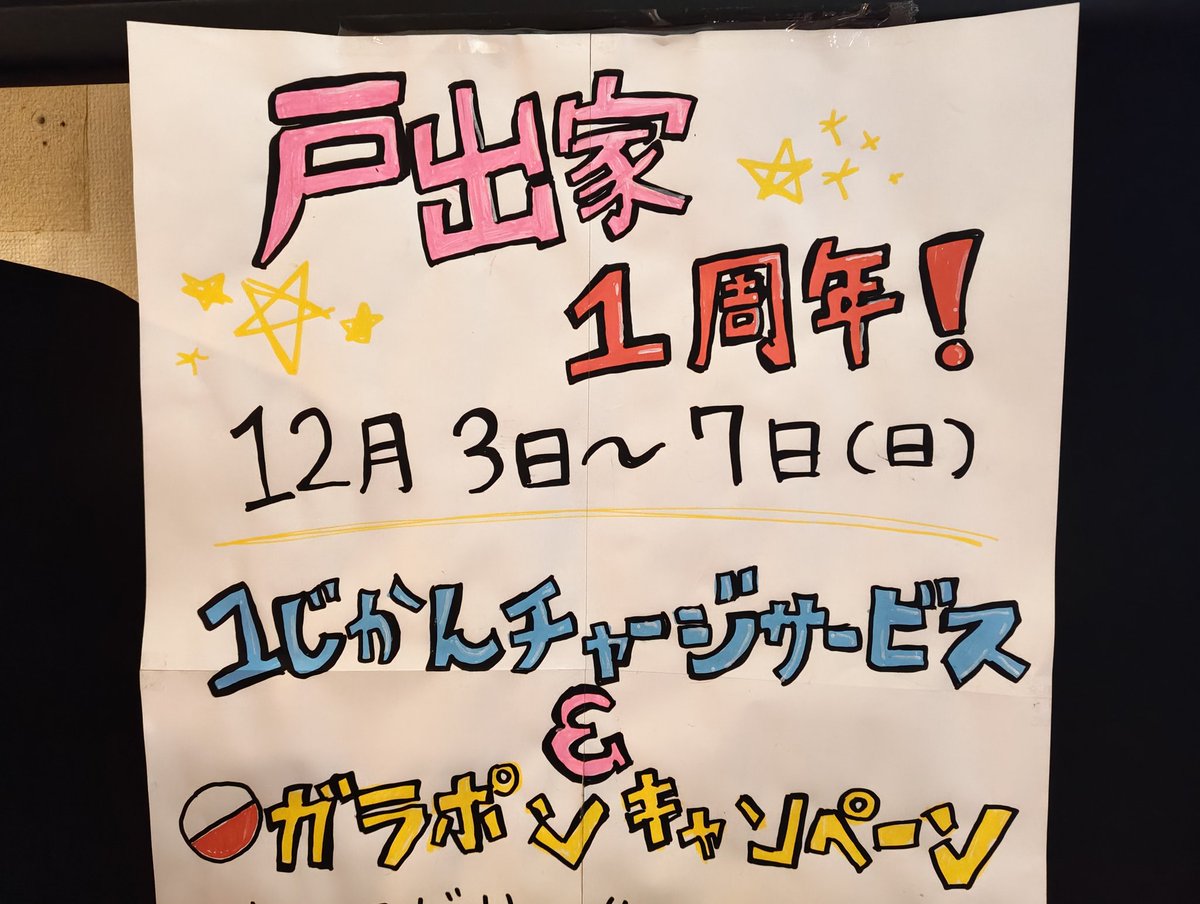 戸出家
1周年!
12月3日~7日(日)
1じかんチャージサービス
&
ガラポンキャンペーン